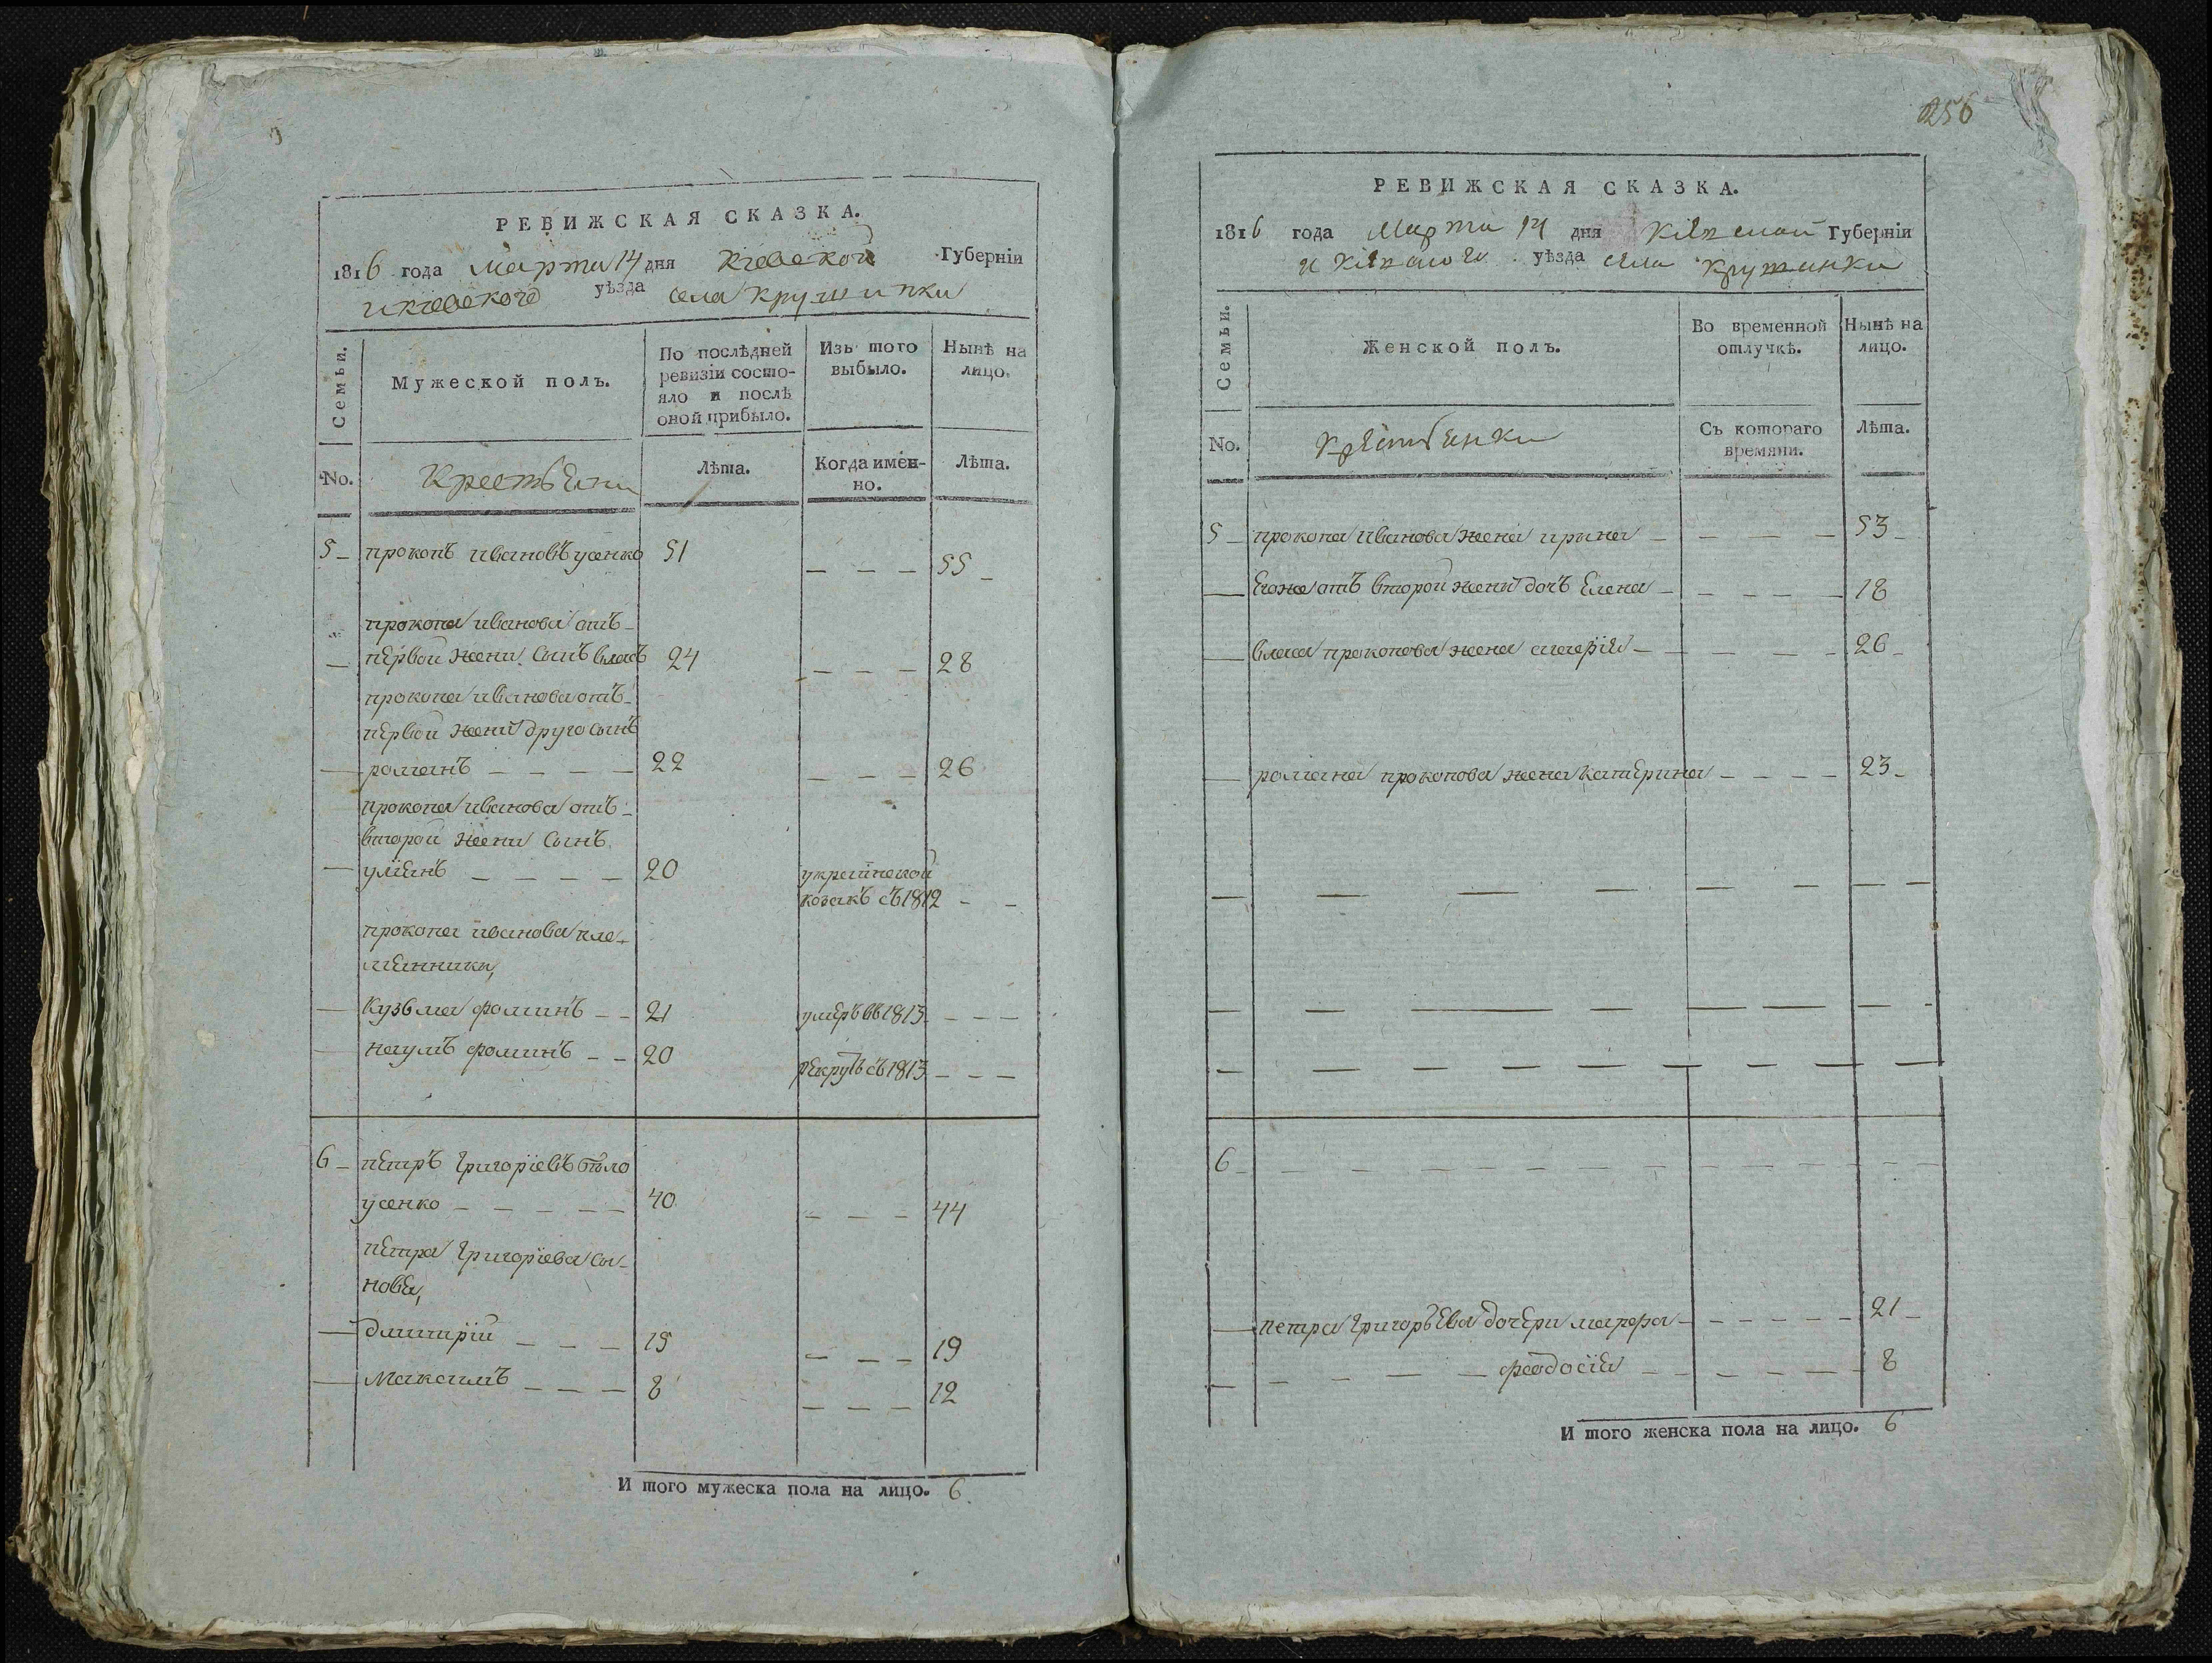 РЕВИЖСКАЯ СКАЗКА.
1816 года марта 14 дня Киевской Губерніи
и киевского уѣзда села крушинки
Семьи.
Мужеской полъ.
По послѣдней ревизіи состояло и послѣ оной прибыло.
Изъ того выбыло.
Нынѣ на лицо.
No.
Крестьяни
Лѣта.
Когда именно.
Лѣта.
5 – прокопъ ивановъ усенко 51 – – – 55 –
прокопа иванова отъ
первой жени сынъ власъ 24 – – – 28
прокопа иванова отъ
первой жени друго сынъ
романъ – – – – 22 – – – 26
прокопа иванова отъ
второй жени сынъ
уліянъ – – – – 20 украинской
козакъ съ 1812 – –
прокопа иванова пле-
мянники,
Кузьма фоминъ – – 21 умеръ въ 1813 – – –
наумъ фоминъ – – 20 рекрутъ съ 1813 – – –
6 – петръ григоріевъ бѣло
усенко – – – – – 40 – – – 44
петра григоріева сы-
новья,
дмитрій – – – 15 – – – 19
Максимъ – – – 8 – – – 12
И того мужеска пола на лицо. 6
256
РЕВИЖСКАЯ СКАЗКА.
1816 года Марта 14 дня Киевской Губерніи
и Киевского уѣзда села Крушинки
Семьи.
Женской полъ.
Во временной отлучкѣ.
Нынѣ на лицо.
No.
Крестьянки
Съ котораго времяни.
Лѣта.
5 – прокопа иванова жена ирина – – – – 53 –
– Егоже отъ второй жени дочъ Елена – – – – – 18
– власа прокопова жена марія – – – – 26 –
– романа прокопова жена катерина – – – – 23 –
6 – – – – – – – – – – –
– петра григорьева дочери марфа – – – – – – 21 –
– – – – – феодосія – – – – – – 8
И того женска пола на лицо. 6